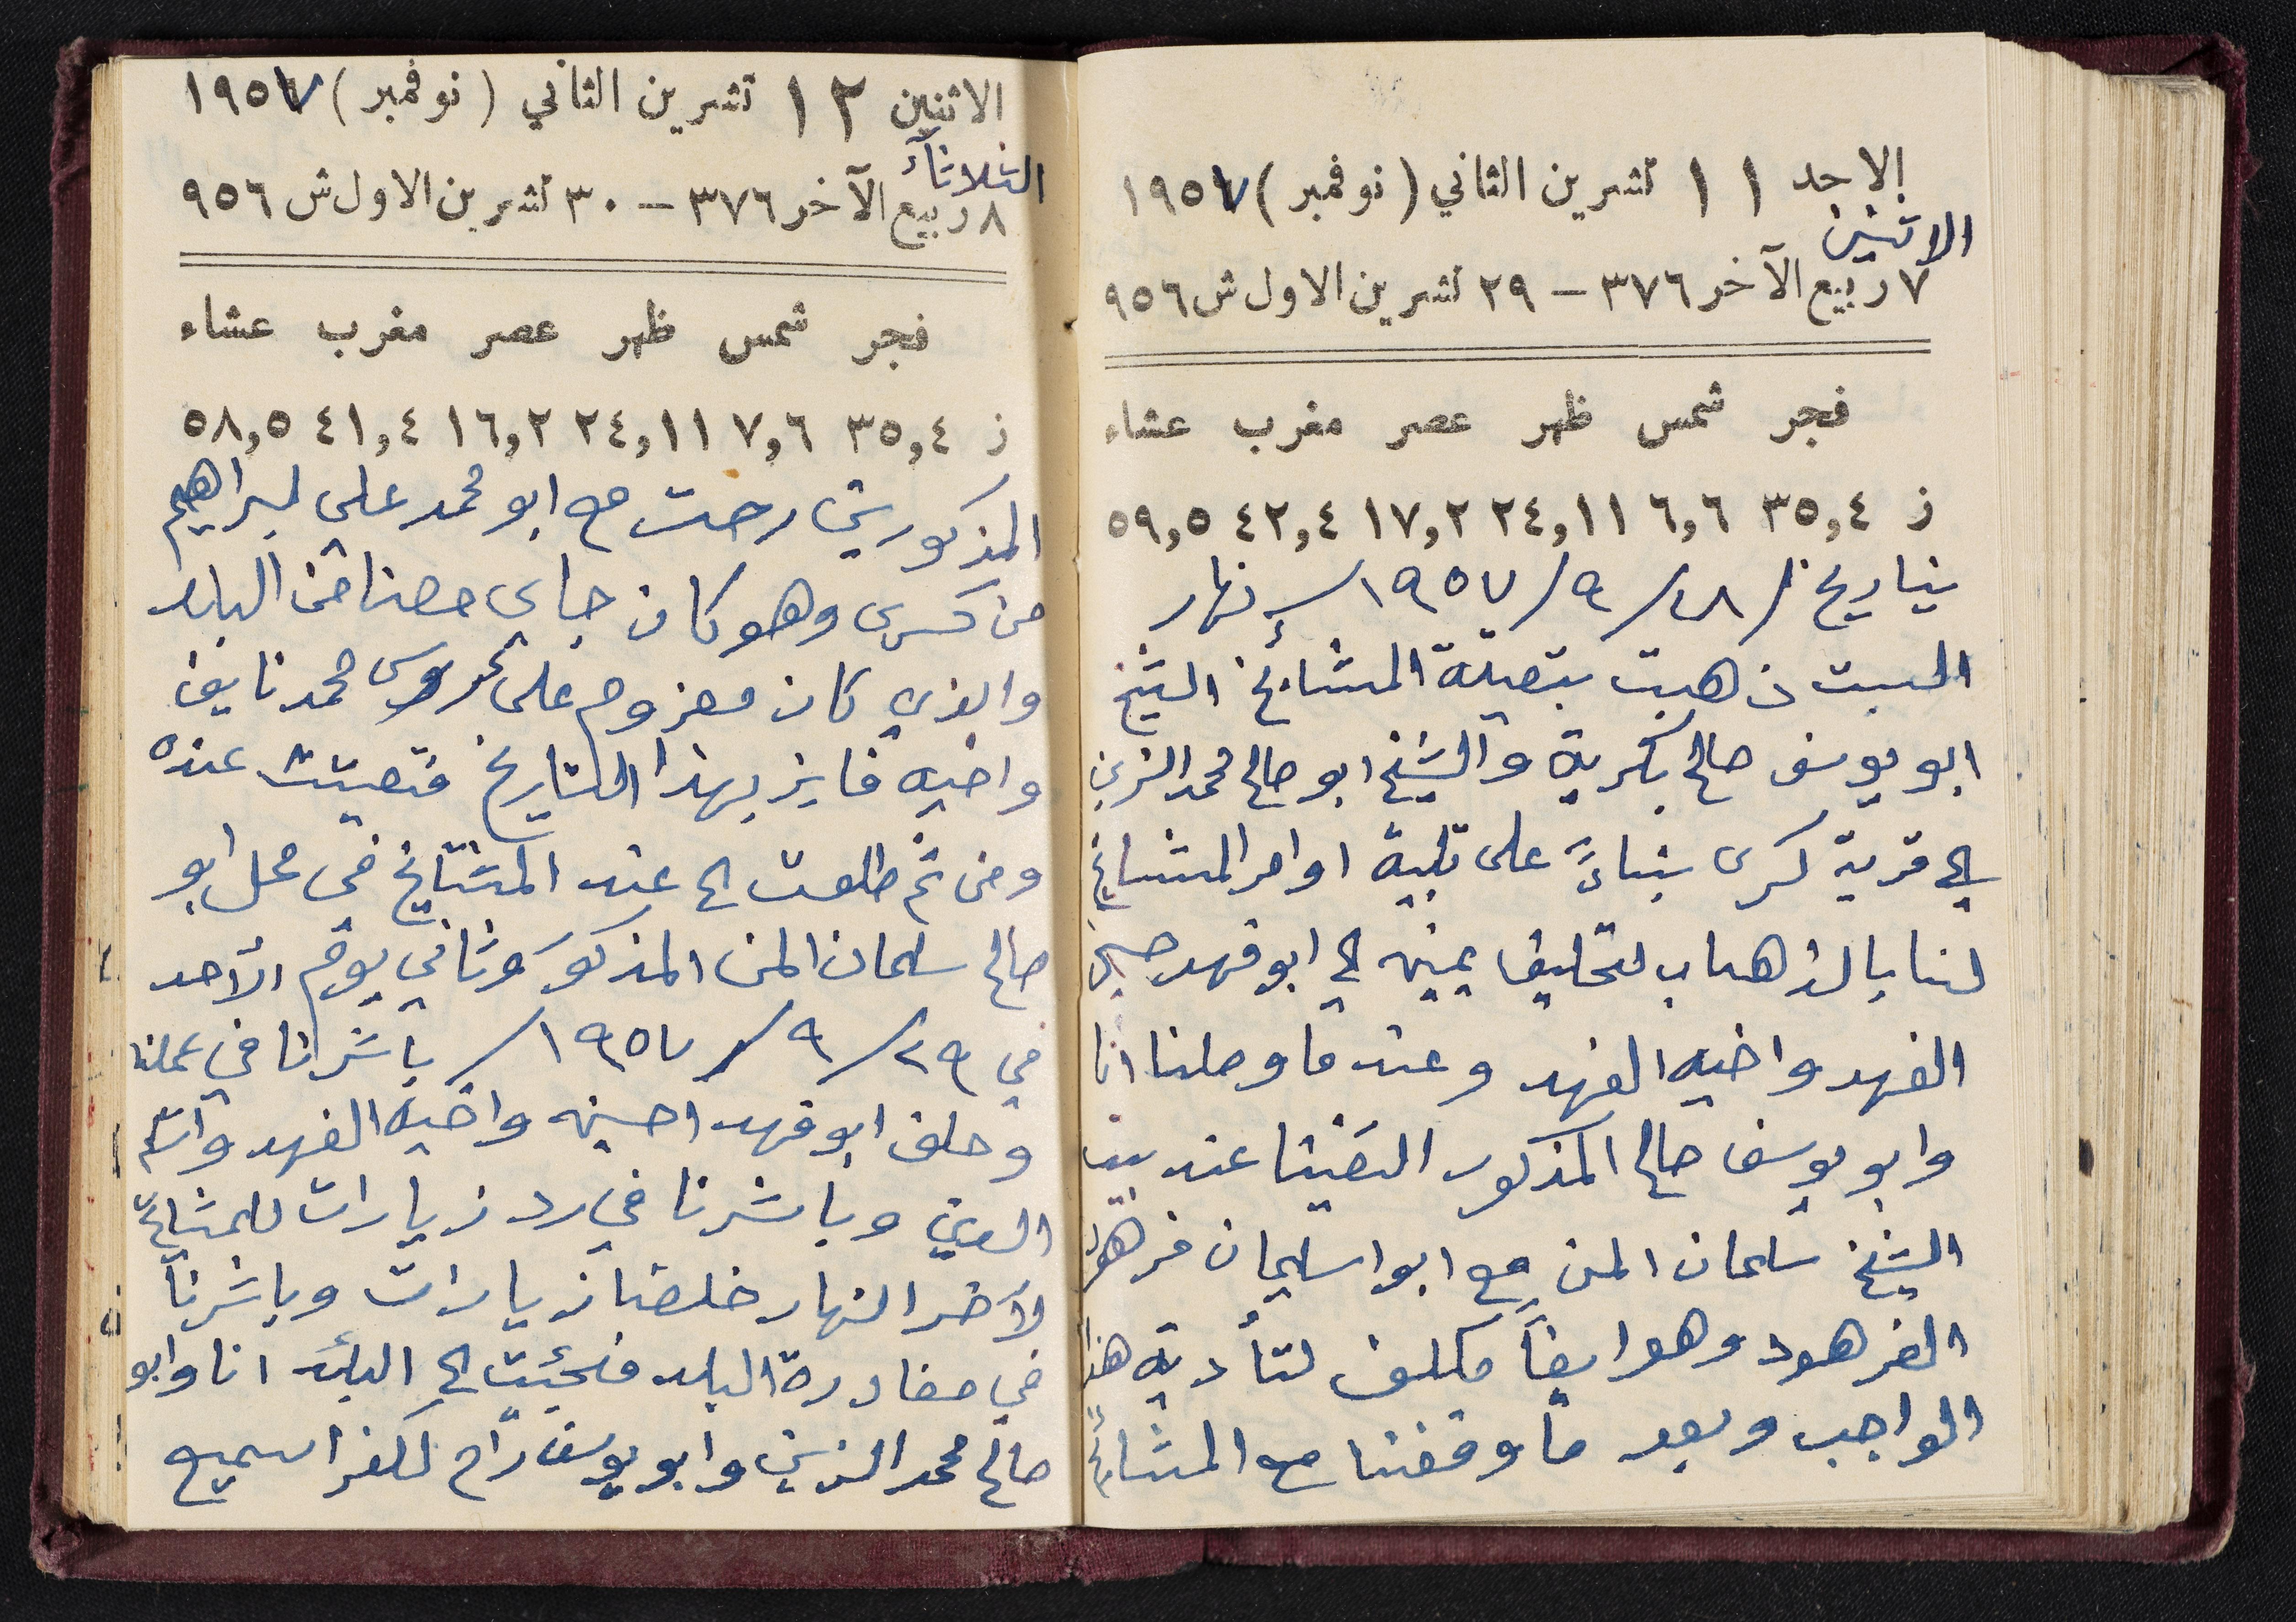 الاحد ١١ تشرين الثاني (نوفمبر) ١٩٥٧
الاثنين
٧ ربيع الآخر ٣٧٦ – ٢٩ تشرين الاول ش ٩٥٦
فجر شمس ظهر عصر مغرب عشاء
ز ٣٥,٤ ٦,٦ ٢٤,١١ ١٧,٢ ٤٢,٤ ٥٩,٥
بتاريخ ٢٨/٩/١٩٥٧ نهار
السبت ذهبت بتصيلة المشائخ الشيخ
ابو يوسف صالح بكرية والشيخ ابو صالح محمد الزين
الى قرية كسرى بناءً على تلبية اوامر المشايخ
لنا بالذهاب لتحليف يمين الى ابو فهد حسين
الفهد واخيه الفهد وعند ما وصلنا انا
وابو يوسف صالح المذكور التقينا عند بيت
الشيخ سلمان المن مع ابو اسليمان فرهود
الفرهود وهو ايضاً مكلف لتأدية هذا
الواجب وبعد ما وقفنا مع المشائخ
الاثنين ١٢ تشرين الثاني (نوفمبر) ١٩٥٧
الثلاثآء
٨ ربيع الآخر ٣٧٦ – ٣٠ تشرين الاول ش ٩٥٦
فجر شمس ظهر عصر مغرب عشاء
ز ٣٥,٤ ٧,٦ ٢٤,١١ ١٦,٢ ٤١,٤ ٥٨,٥
المذكورين رحت مع ابو محمد علي ابراهيم
من كسرى وهو كان جاي معنا من البلد
والذي كان معزوم على عروس محمد نايف
واخيه فايز بهذا التاريخ فتعشيت عنده
ومن ثم طلعت الى عند المشايخ في محل ابو
صالح سلمان المن المذكور وثاني يوم الأحد
في ٢٩/٩/١٩٥٧ باشرنا في عملنا
وحلف ابو فهد احسين واخيه الفهد
الدين وباشرنا في رد زيارات للمشايخ
لآخر النهار خلصنا زيارات وباشرنا
في مغادرة البلد فجئت الى البلد انا وابو
صالح محمد الزين وابو يوسف راح لكفر اسميع